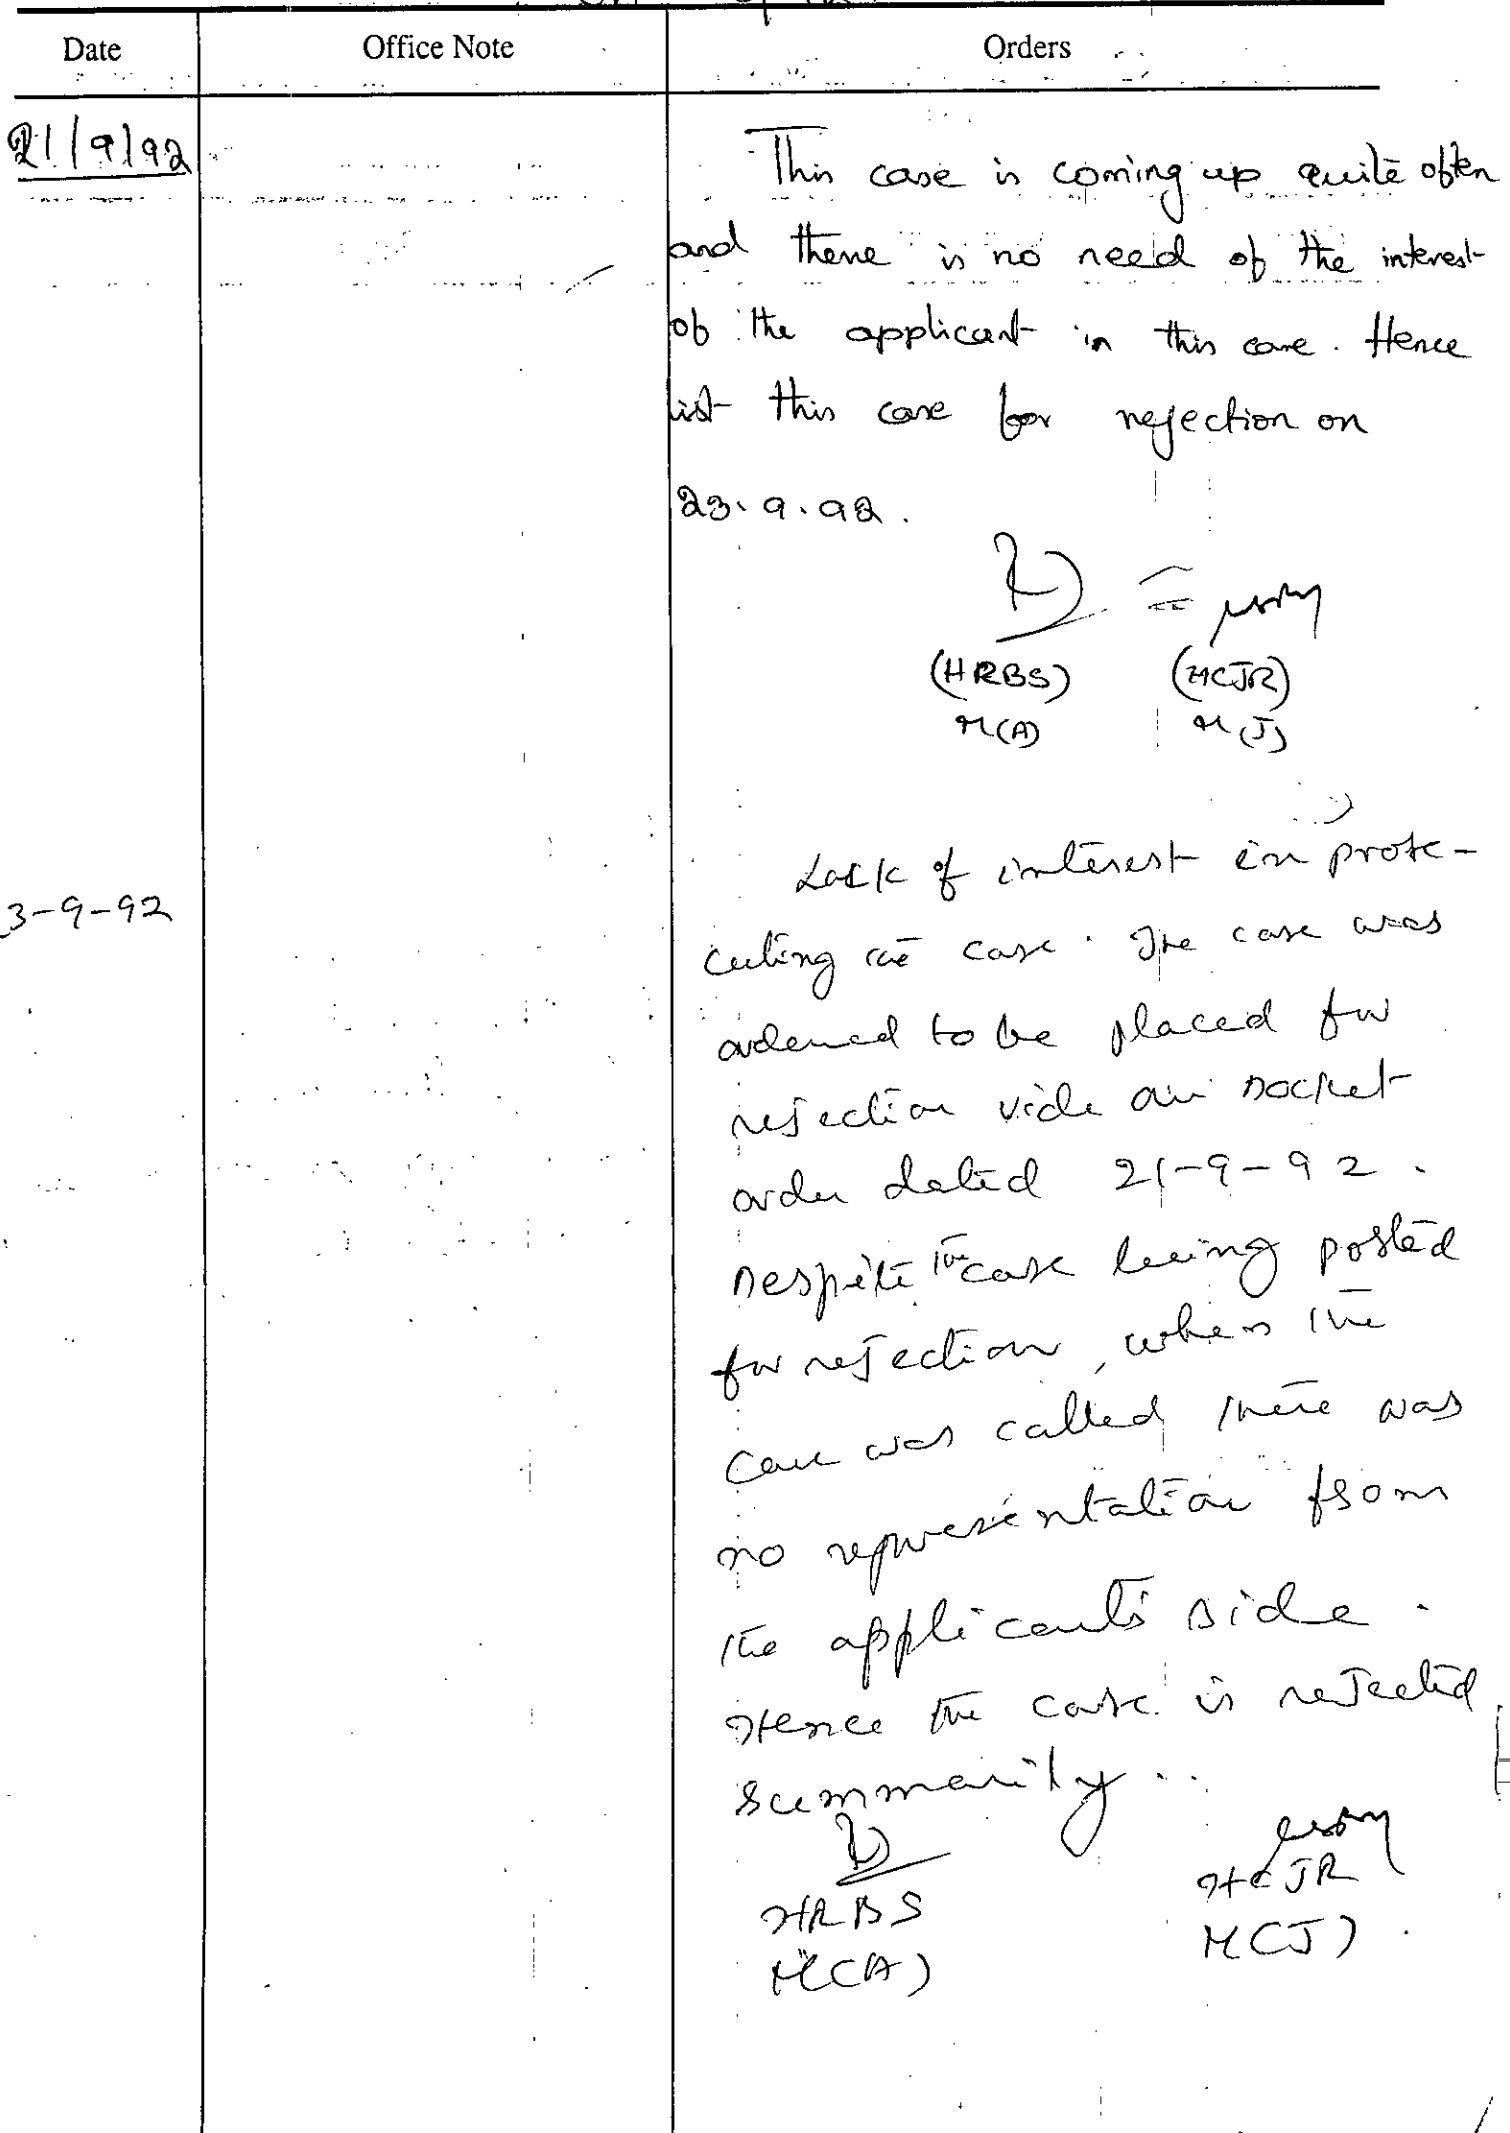 Date Office Note Orders
21/9/92
This case is coming up quite often
and there is no need of the interest
of the applicant in this case. Hence
list this case for rejection on
23.9.92.
(HRBS) (HCJR)
M(A) M(J)
3-9-92
Lack of interest in prose-
cuting the case. The case was
ordered to be placed for
rejection vide our Docket
order dated 21-9-92.
Despite the case being posted
for rejection, when the
case was called there was
no representation from
the applicant's side.
Hence the case is rejected
summarily.
HRBS HCJR
M(A) M(J).